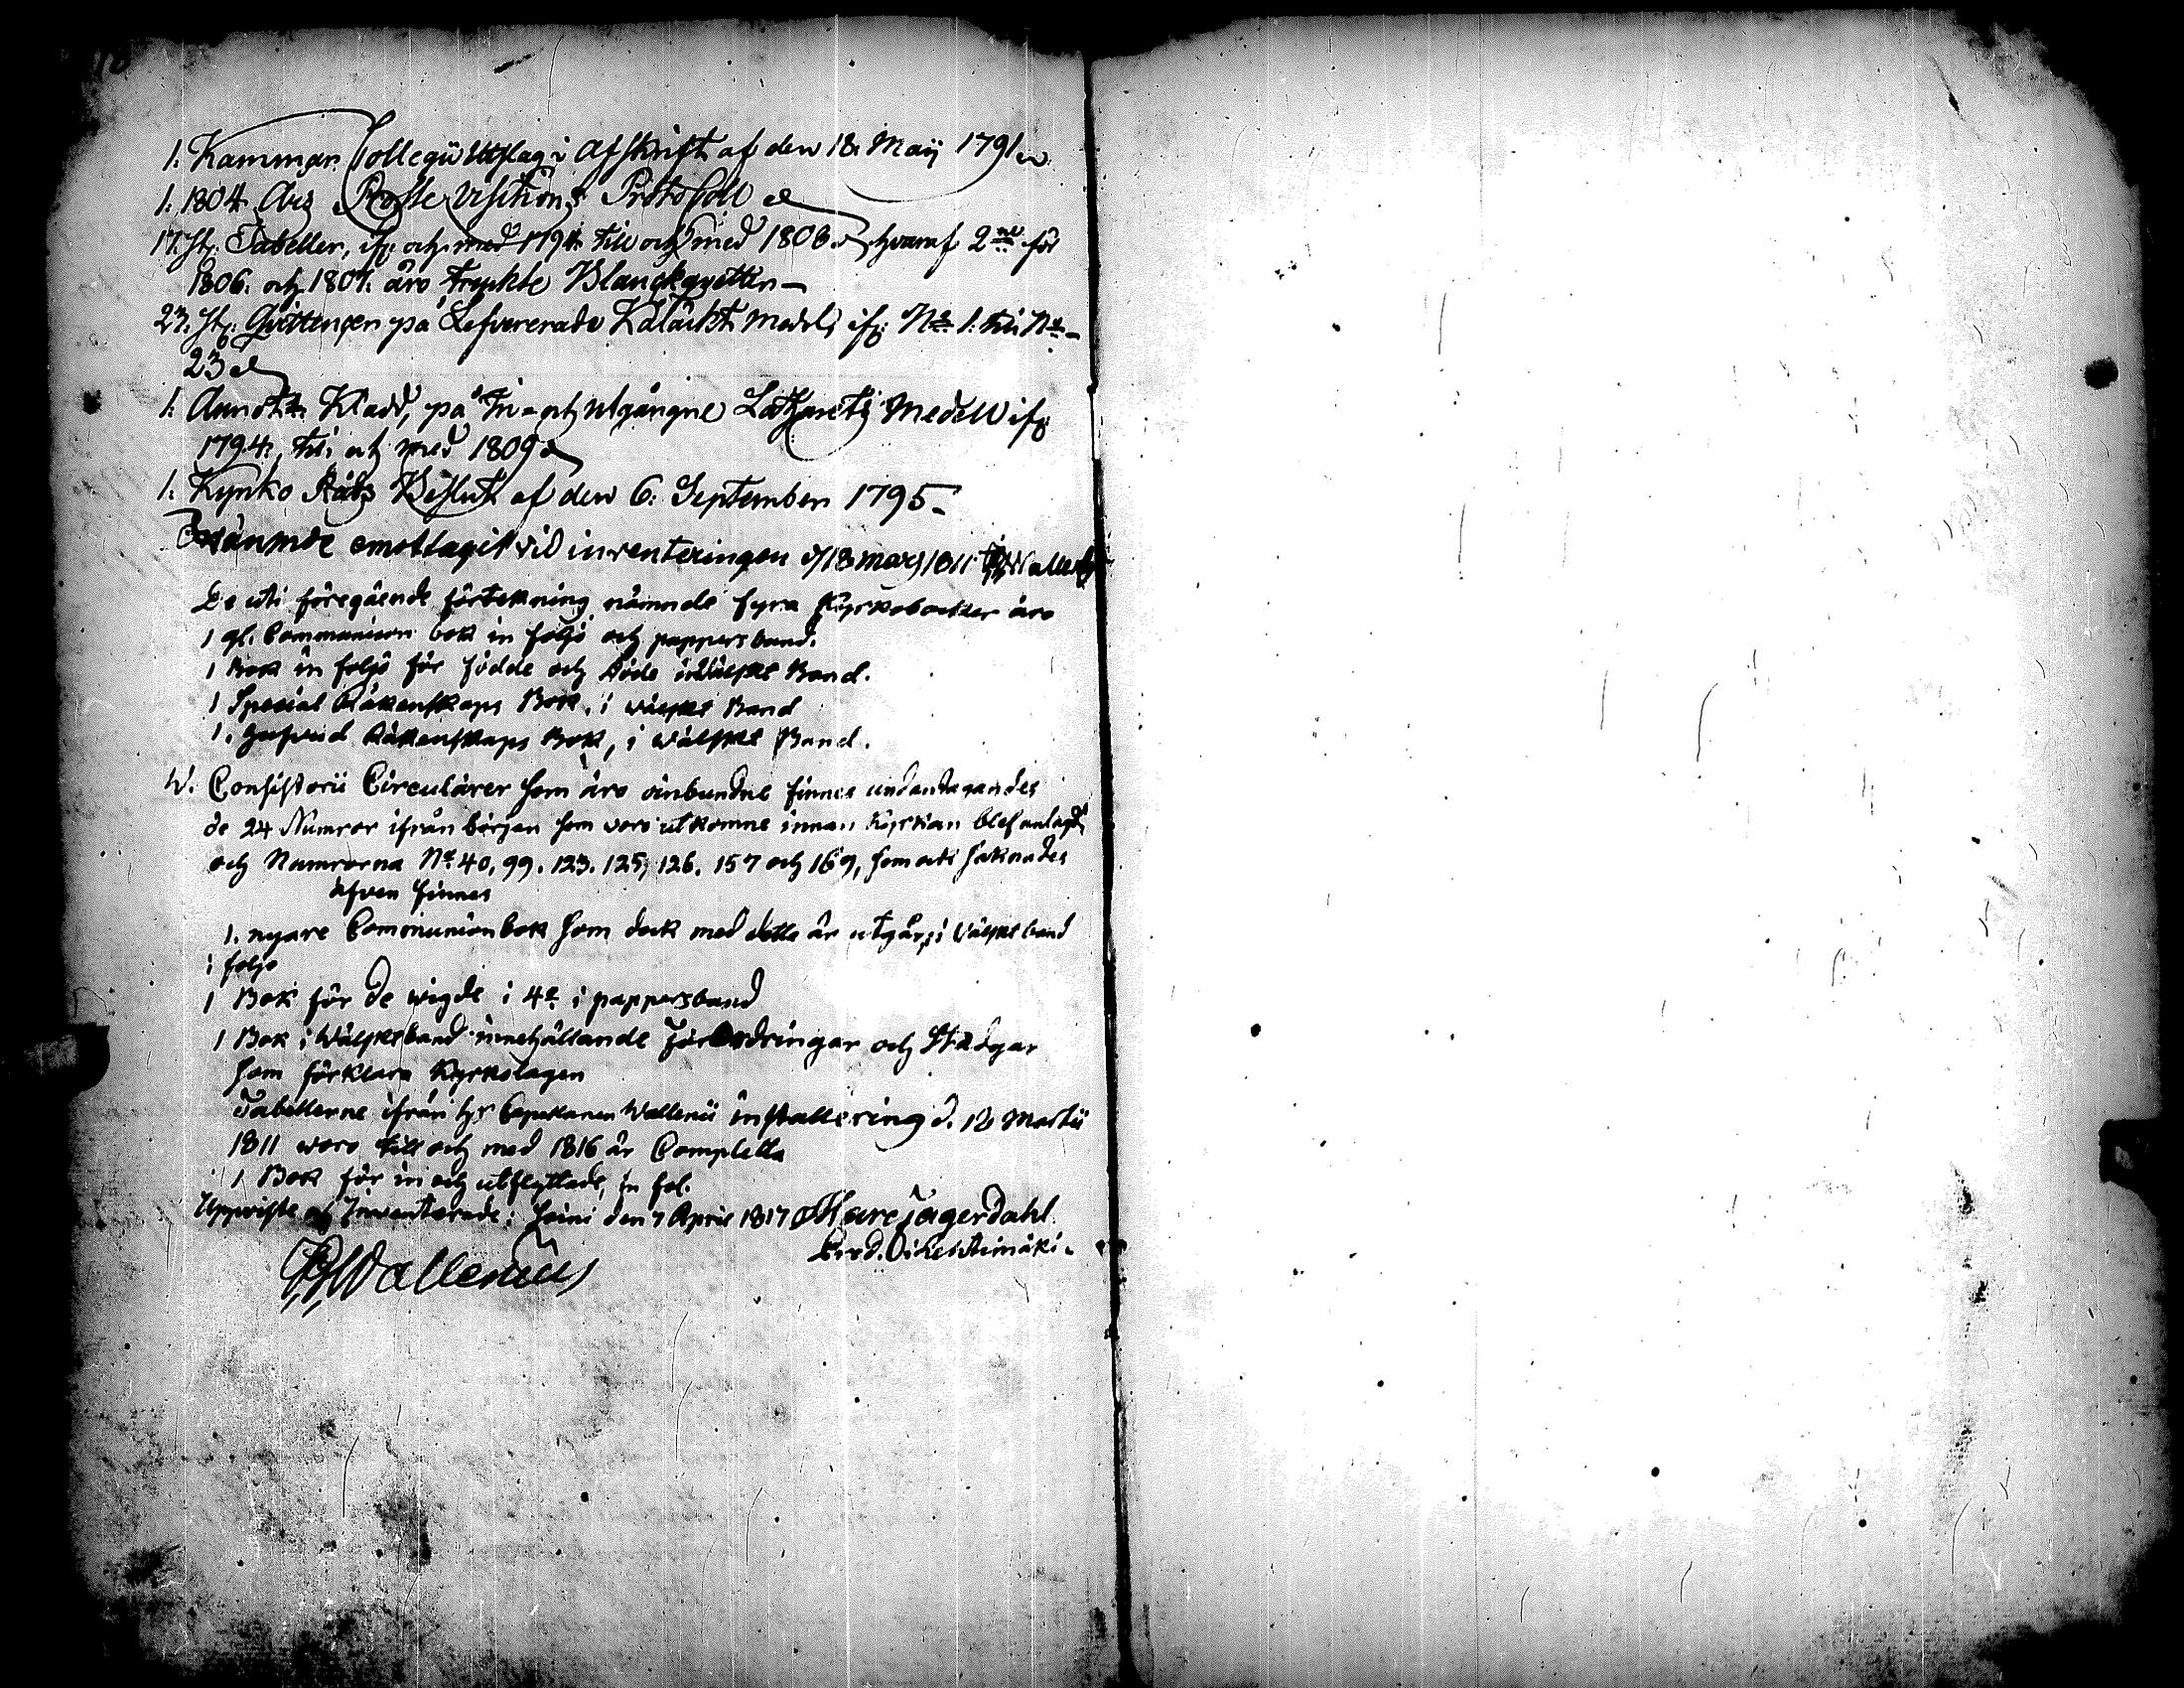 1. Kammar Collegii Utslag i Afskrift af den 18. Maij 1791
1. 1804 Års Probste Visitions Protocoll
17. st. Tabeller, ifr. och med 1794 till och med 1808 hvaraf 2ne för
1806. och 1807. äro tryckte Blanckqvetter
23. st. Qvittenser på Lefvererade Kolläckt Medel, ifr. No 1. till No
23
1. Annot. Kladd, på In- och utgångne Lazaretz Medell ifr.
1794, till och med 1809
1. Kyrko Råds Beslut af den 6. September 1795
emottagit vid inventeringen d 18 Mars 1811
De uti föregående förtekning nämnde fyra Kyrkoböcker äro
1 gl. Communion bok in folio och pappersband.
1 Bok in folio för födde och döde i Wälskt Band.
1 Special Räkenskaps Bok, i wälskt Band
1. Räkenskaps Bok, i wälskt Band.
Consistorii Circulärer som äro oinbundne finnes undantagandes
de 24 Numror ifrån början som voro utkomne innan Kyrkan blef anlagd
och Numrorna No 40, 99. 123. 125, 126. 157 och 169, som saknades
Äfven finnes
1. nyare Communionbok som dock med detta år utgår, i Wälskt band
i folio
1 Bok för de wigde i 4o i pappersband
1 Bok i Wälsktband innehållande Förordningar och Stadgar
som förklara Kyrkolagen
Tabellerne ifrån hr Capellanen Wallenii installering d. 12 Martii
1811 woro till och med 1816 år Completta
1 Bok för in och utflyttade, in fol.
Uppwiste och Inventerade: Soini den 7 April 1817 Marc Jägerdahl
Pred. i Lehtimäki.
Wallenius